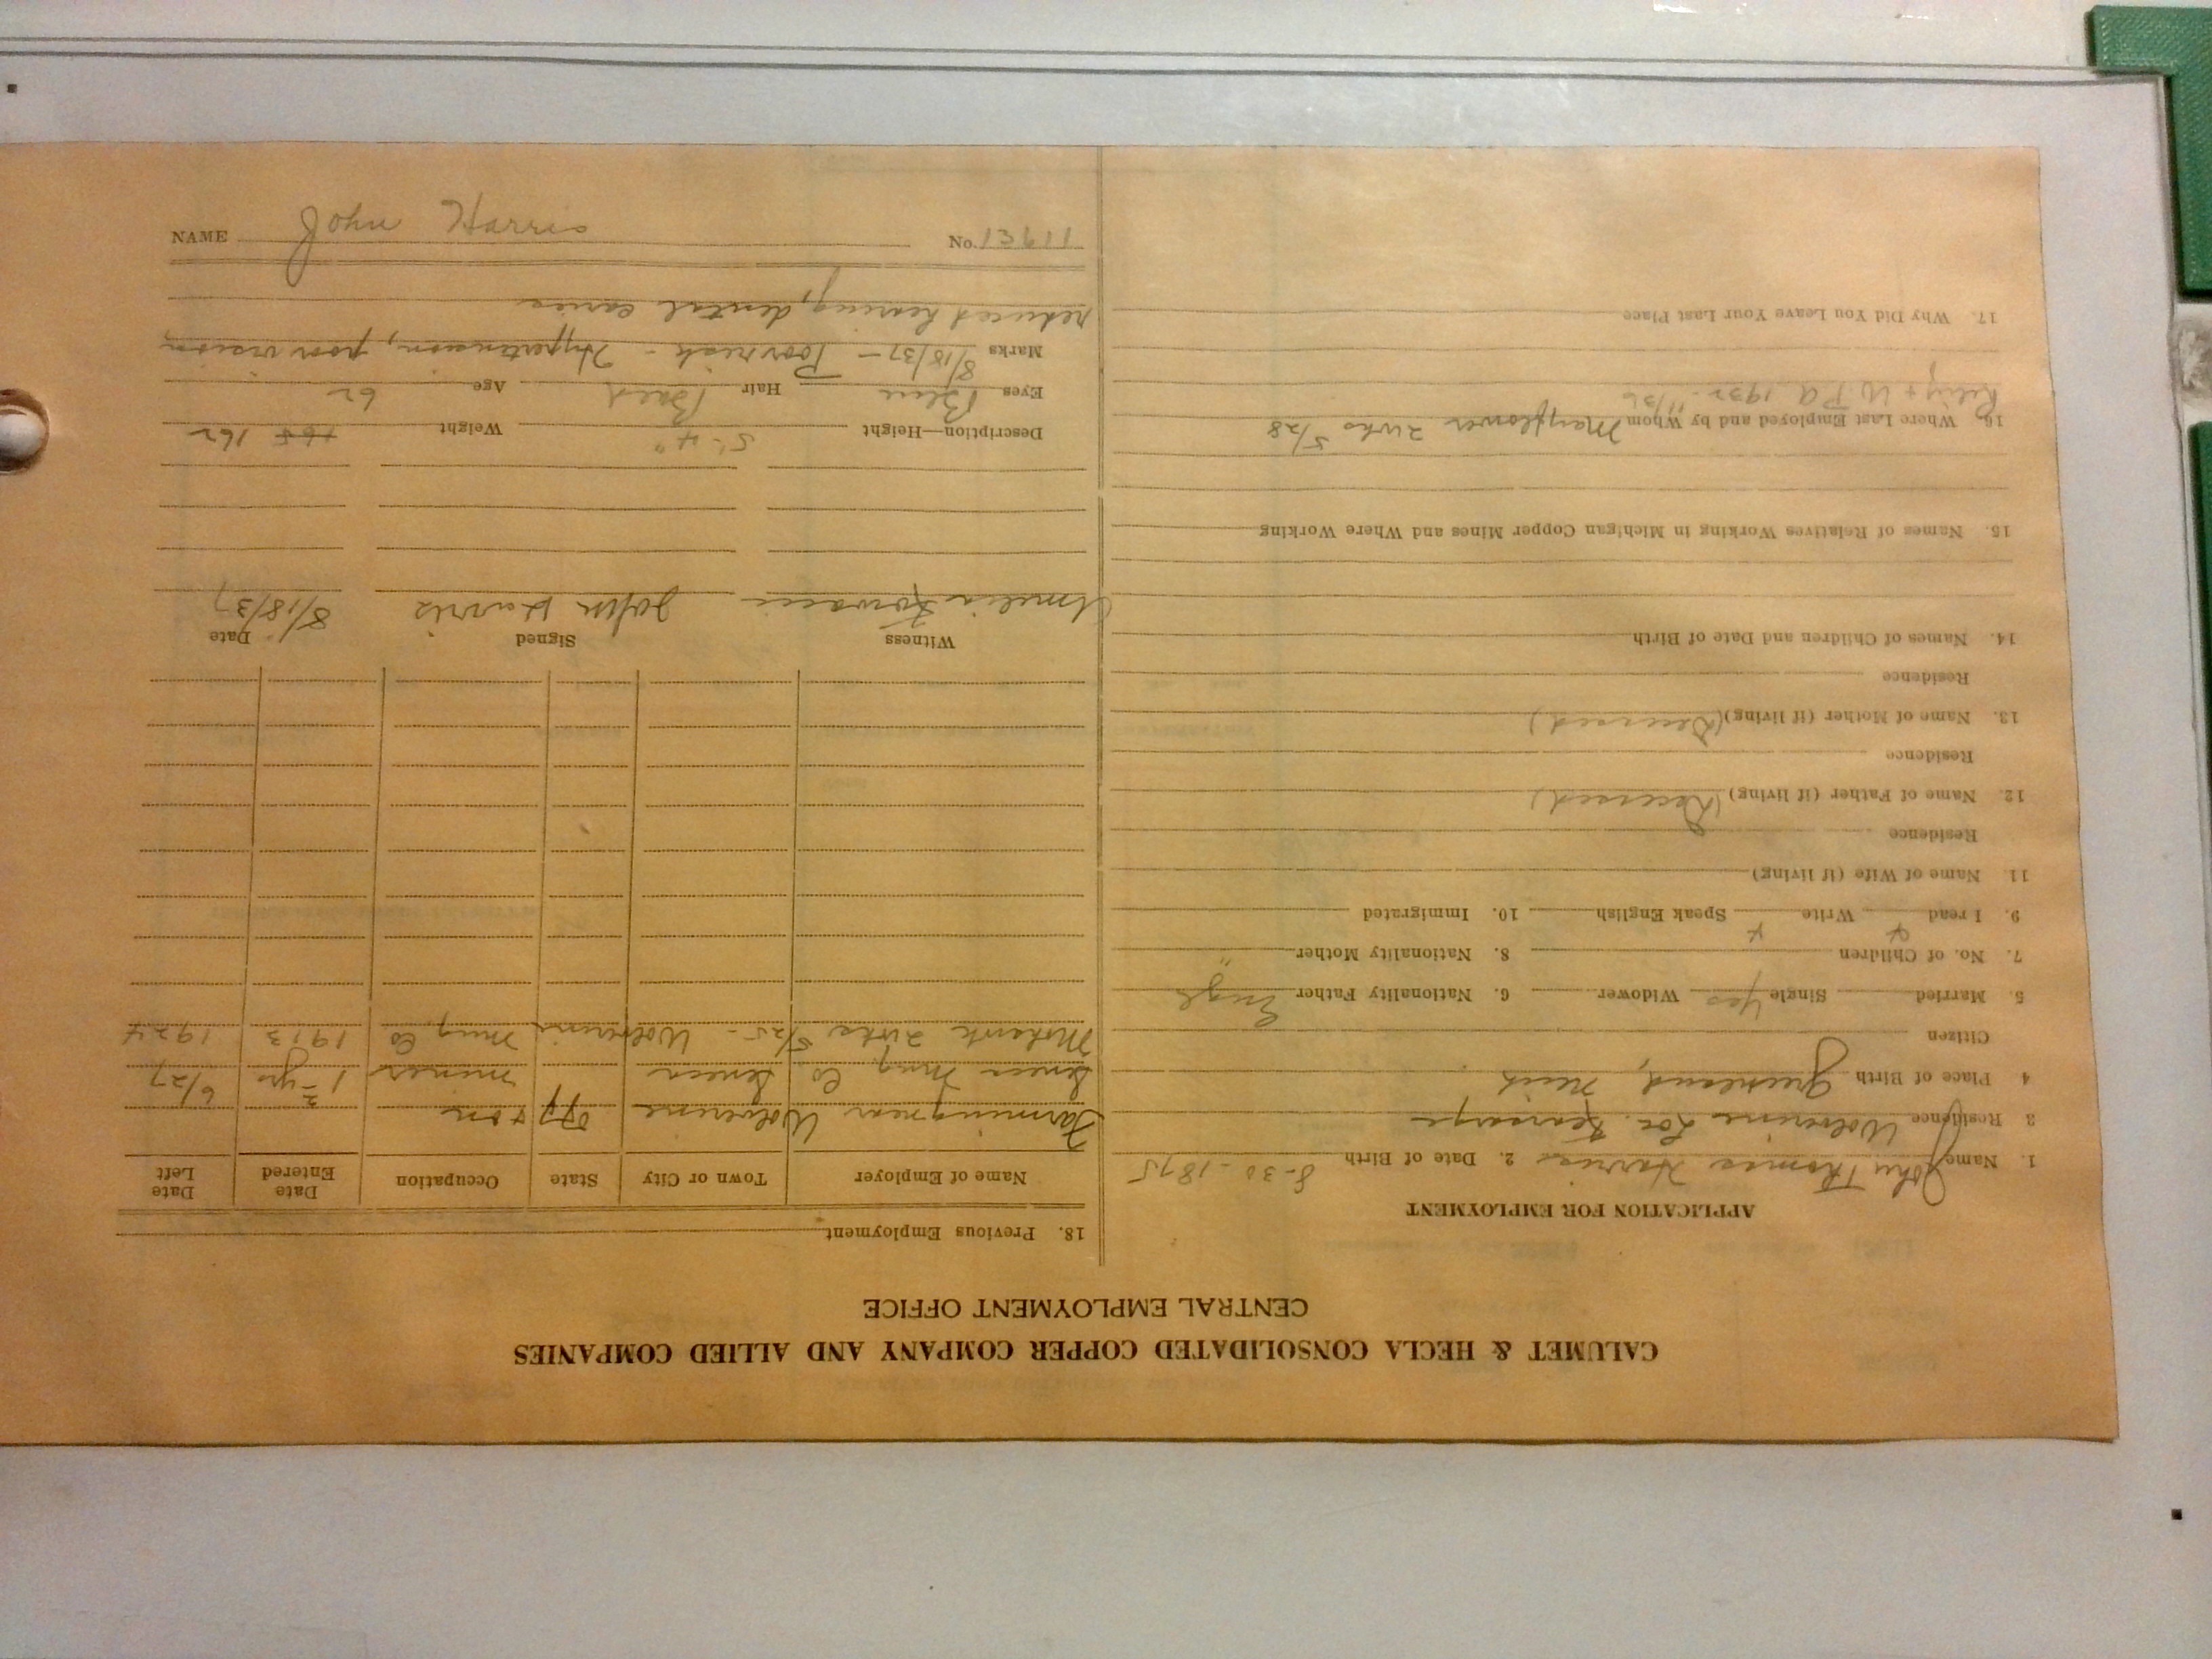 CALUMET & HECLA CONSOLIDATED COPPER COMPANY AND ALLIED COMPANIES
CENTRAL EMPLOYMENT OFFICE
APPLICATION FOR EMPLOYMENT
1. Name John Thomas Harris 2. Date of Birth 8-30-1875
3 Residence Wolverine Loc. Kearsarge
4 Place of Birth Greenland, Mich
Citizen
5. Married Single Yes Widower 6. Nationality Father Engl
7. No. of Children 8. Nationality Mother "
9. I read x Write x Speak English 10. Immigrated
11. Name of Wife (if living)
Residence
12. Name of Father (if living) (Deceased)
Residence
13. Name of Mother (if living) (Deceased)
Residence
14. Names of Children and Date of Birth
15. Names of Relatives Working in Michigan Copper Mines and Where Working
16. Where Last Employed and by Whom Mayflower 2 wks 5/28
W.P.A 1932 - 11/36
17. Why Did You Leave Your Last Place
18. Previous Employment
Name of Employer Town or City State Occupation Date Entered Date Left
Farming near Wolverine off + on
Seneca Mng Co Seneca miner 1 1/2 yrs 6/27
Mohawk 2 wks 5/25 - Wolverine Mng Co 1913 1924
Witness Signed Date
Amelia John Harris 8/18/37
Description—Height 5'-4" Weight 165 162
Eyes Blue Hair Bald Age 62
Marks 8/18/37 - Poor risk - Hypertension, poor vision
reduced hearing, dental caries
NAME John Harris No. 11931